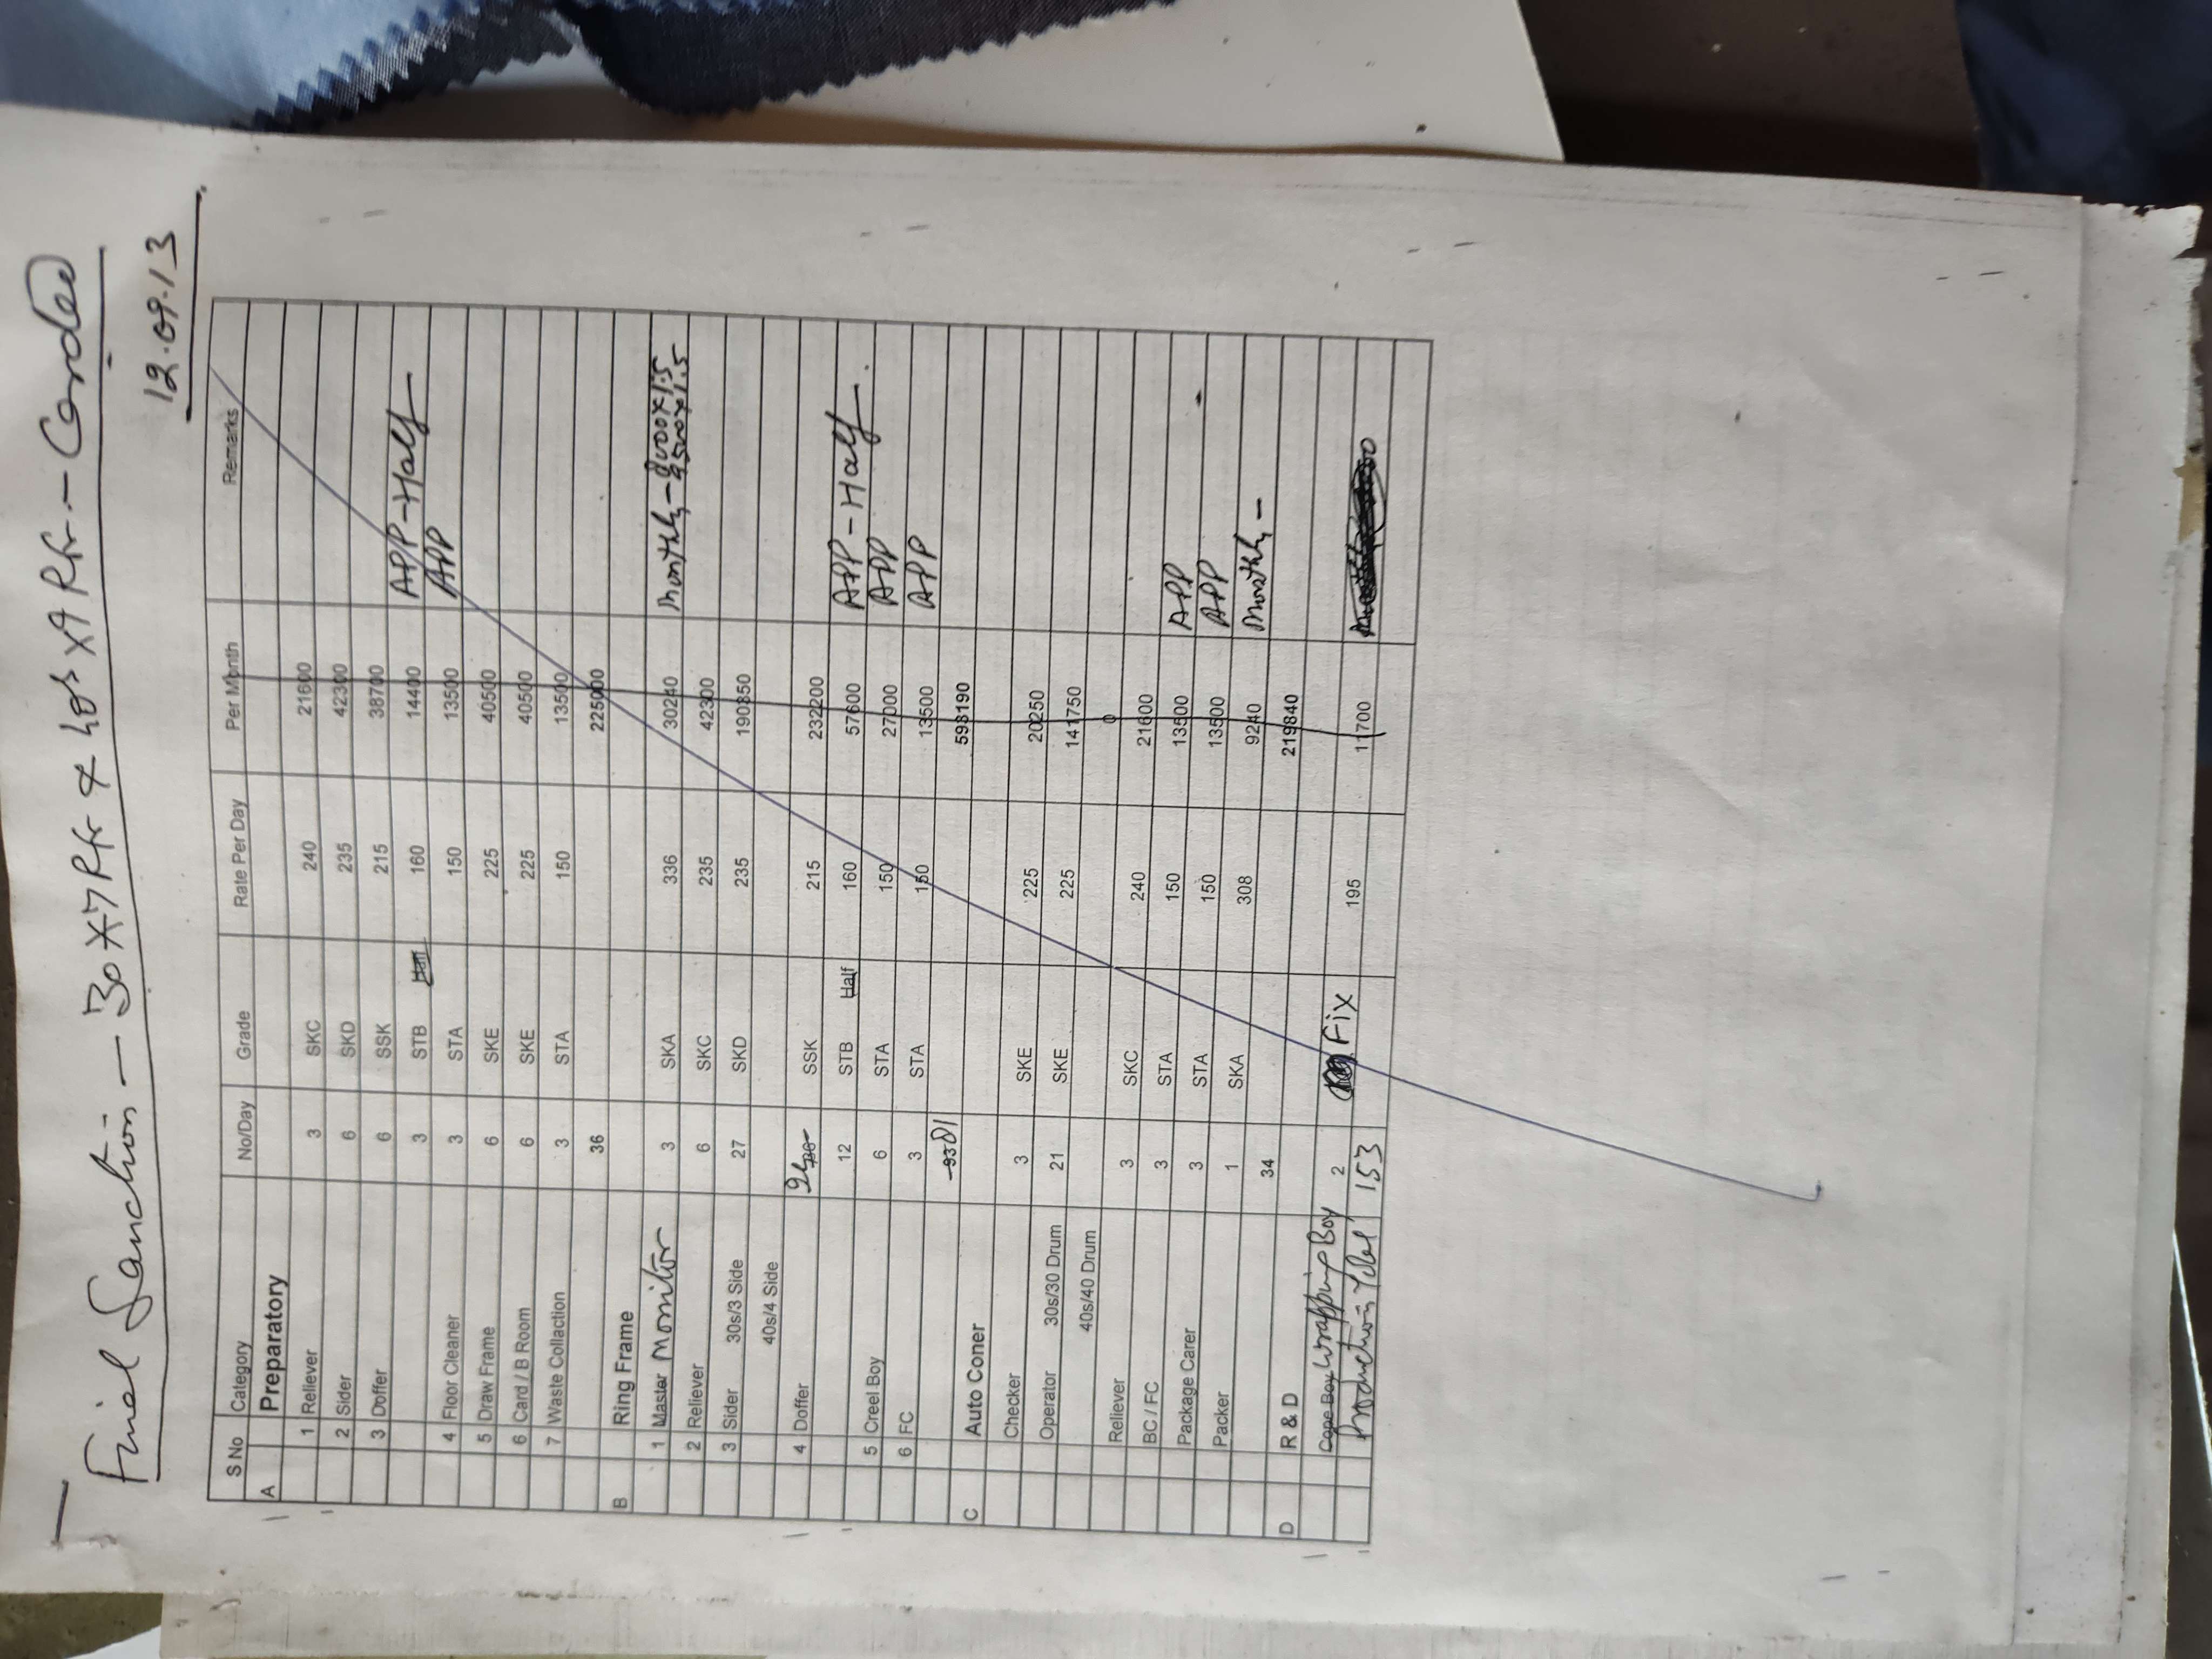 Final Sanction - 30 x 7 Rfr & 40s x 9 Rfr - Corded
12.09.13
S No Category No/Day Grade Rate Per Day Per Month Remarks
A Preparatory
1 Reliever 3 SKC 240 21600
2 Sider 6 SKD 235 42300
3 Doffer 6 SSK 215 38700
3 STB Half 160 14400 APP-Half
4 Floor Cleaner 3 STA 150 13500 APP
5 Draw Frame 6 SKE 225 40500
6 Card / B Room 6 SKE 225 40500
7 Waste Collaction 3 STA 150 13500
36 225000
B Ring Frame
1 Master Monitor 3 SKA 336 30240 Monthly - 8000x1.5 9500x1.5
2 Reliever 6 SKC 235 42300
3 Sider 30s/3 Side 27 SKD 235 190350
40s/4 Side
4 Doffer 24 SSK 215 232200
12 STB Half 160 57600 APP-Half
5 Creel Boy 6 STA 150 27000 APP
6 FC 3 STA 150 13500 APP
93 81 593190
C Auto Coner
Checker 3 SKE 225 20250
Operator 30s/30 Drum 21 SKE 225 141750
40s/40 Drum 0
Reliever 3 SKC 240 21600
BC / FC 3 STA 150 13500 APP
Package Carer 3 STA 150 13500 APP
Packer 1 SKA 308 9240 Monthly -
34 219840
D R & D
Cope Boy Wrapping Boy 2 Fix 195 11700
Production Total 153